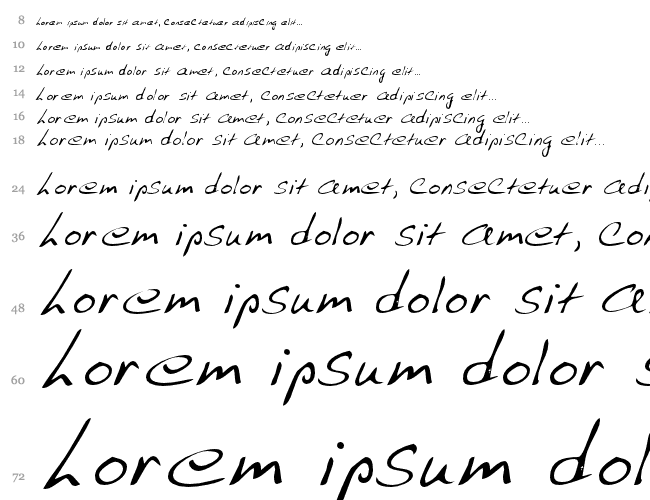 8 Lorem ipsum dolor sit amet, consectetuer adipiscing elit...
10 Lorem ipsum dolor sit amet, consectetuer adipiscing elit...
12 Lorem ipsum dolor sit amet, consectetuer adipiscing elit...
14 Lorem ipsum dolor sit amet, consectetuer adipiscing elit...
16 Lorem ipsum dolor sit amet, consectetuer adipiscing elit...
18 Lorem ipsum dolor sit amet, consectetuer adipiscing elit...
24 Lorem ipsum dolor sit amet, consectetuer adi
36 Lorem ipsum dolor sit amet, co
48 Lorem ipsum dolor sit a
60 Lorem ipsum dolor s
72 Lorem ipsum dol